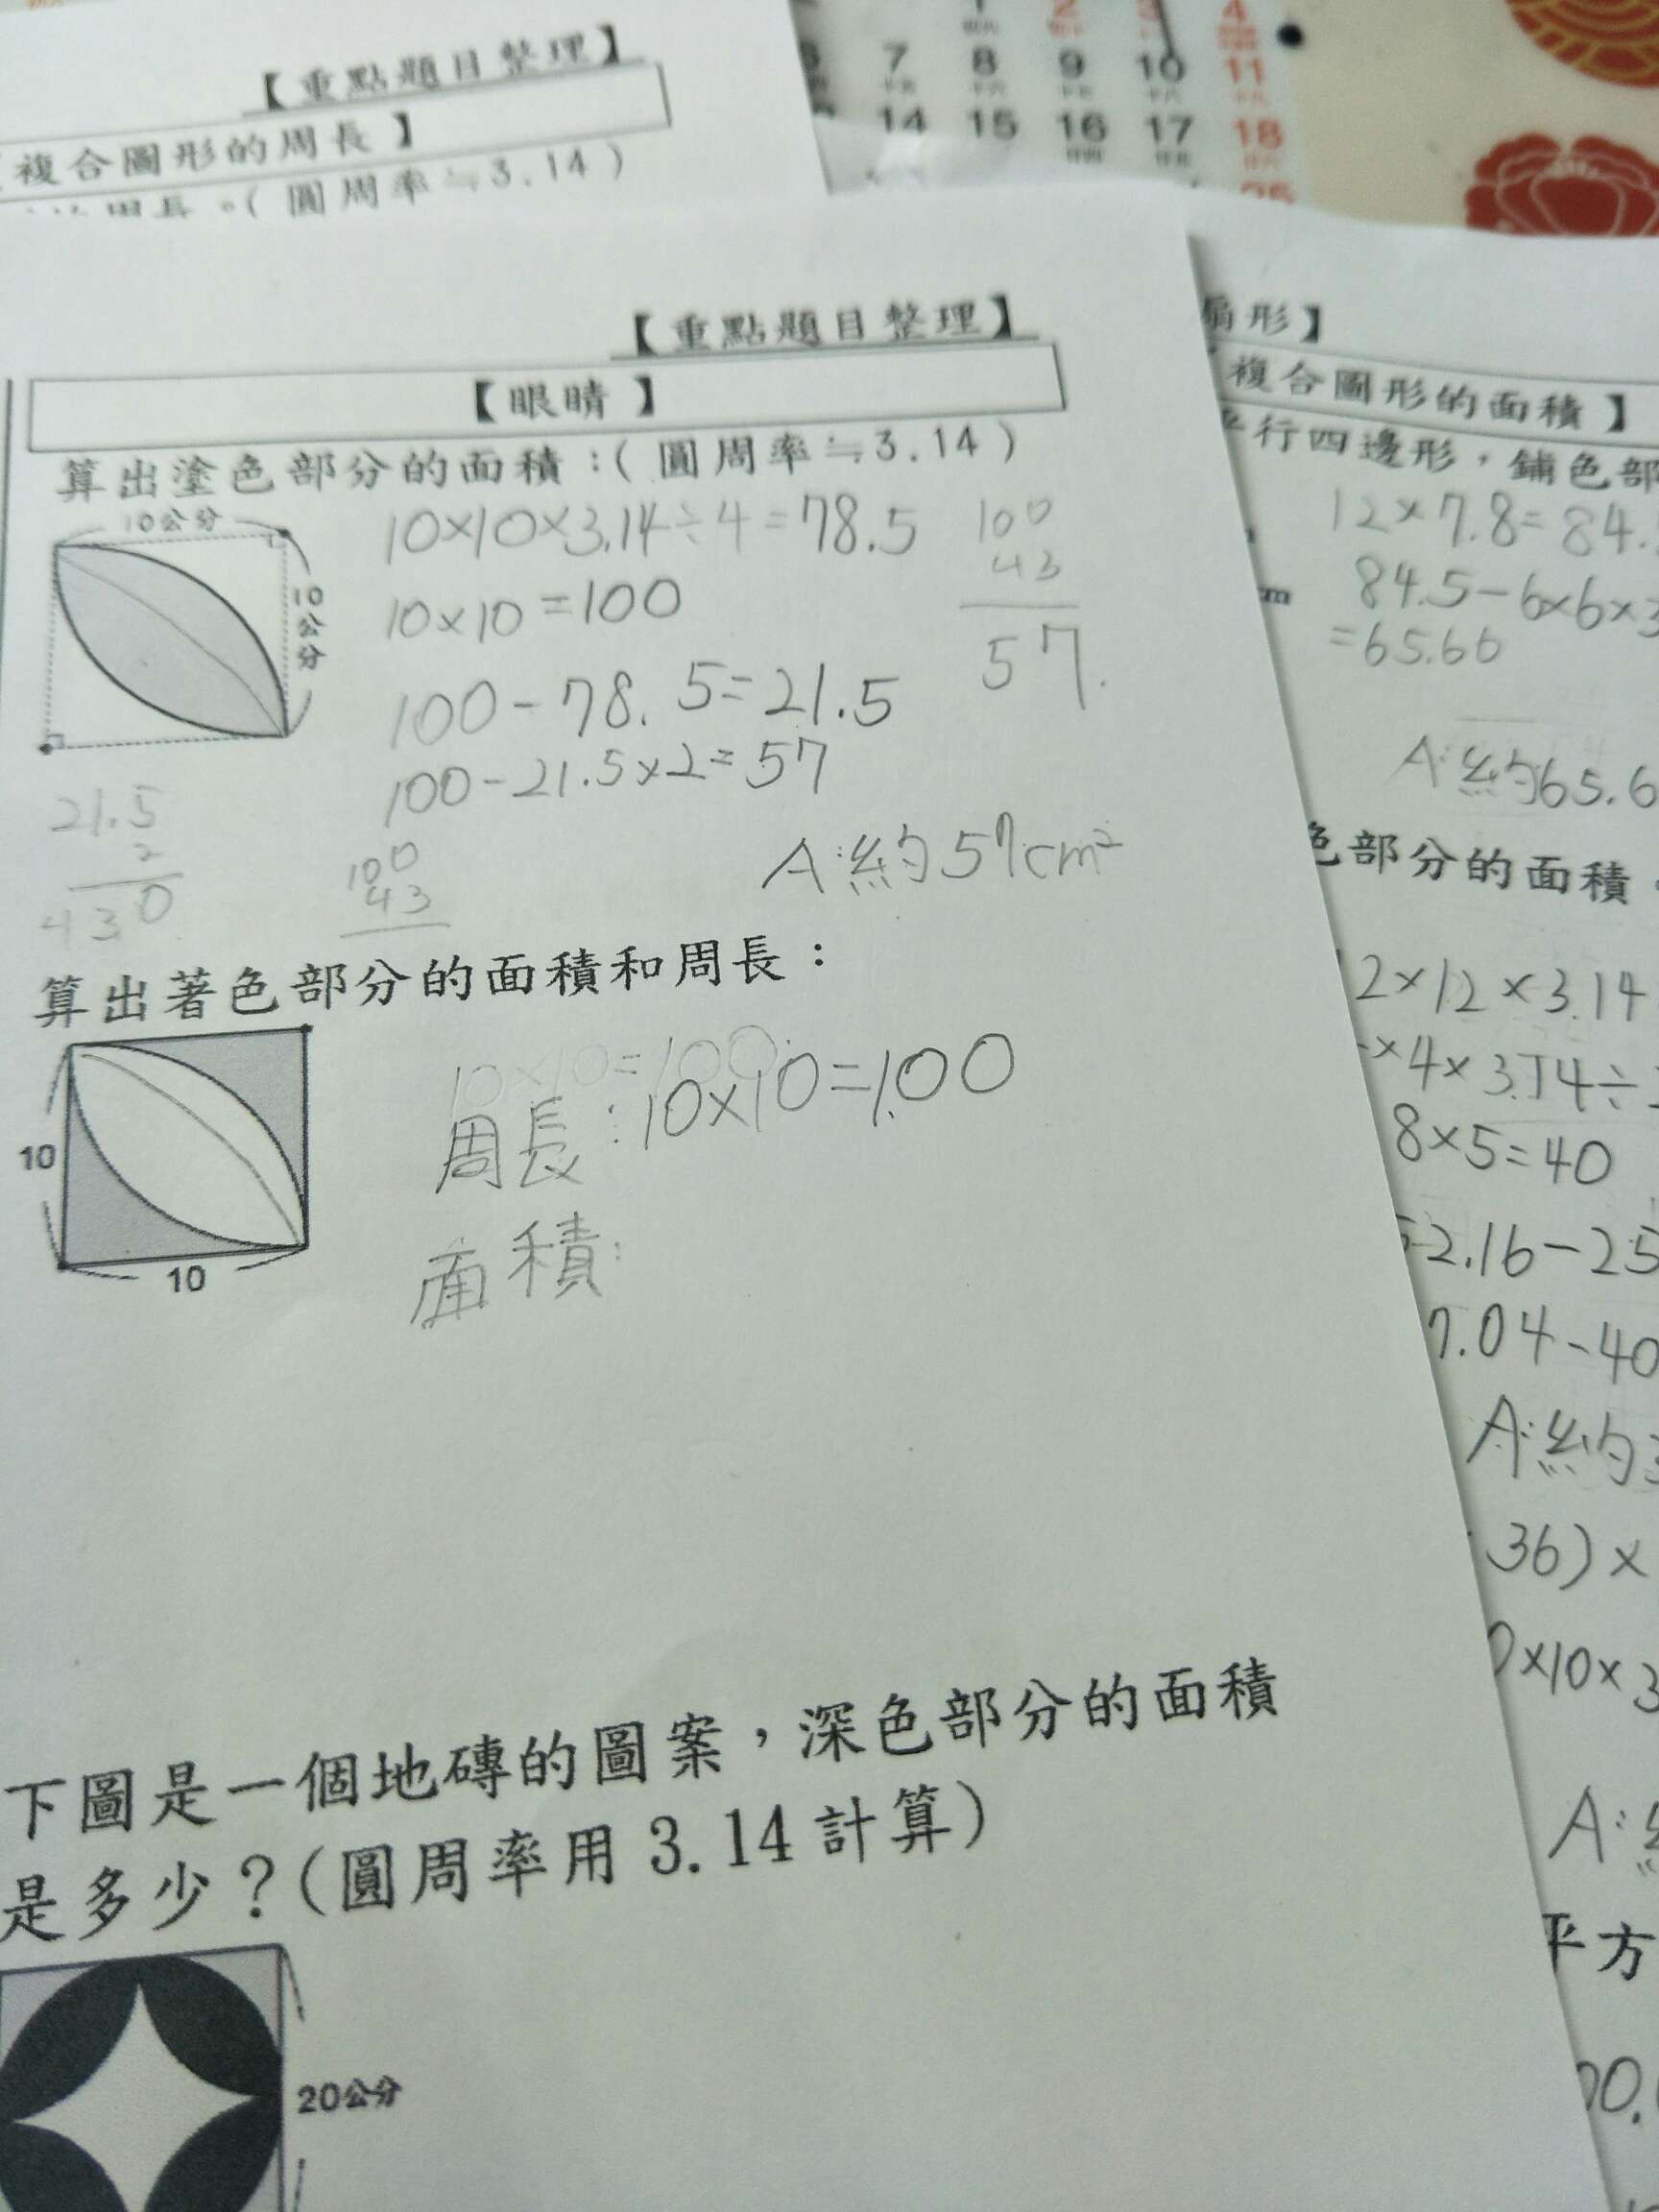 【重點題目整理】
複合圖形的周長】
(圓周率≒3.14)
2 3 4
7 8 9 10 11
14 15 16 17 18
25
【重點題目整理】
【眼睛】
算出塗色部分的面積：(圓周率≒3.14)
10公分
10公分
10×10×3.14÷4=78.5
10×10=100
100-78.5=21.5
100-21.5×2=57
A:約57cm²
100
43
57
21.5
2
43.0
100
43
算出著色部分的面積和周長：
10
10
10×10=100
周長:10×10=100
面積:
下圖是一個地磚的圖案，深色部分的面積
是多少？(圓周率用 3.14 計算)
20公分
扇形】
複合圖形的面積】
平行四邊形，鋪色部
12×7.8=84.
cm
84.5-6×6×3
=65.66
A:約65.6
色部分的面積
12×12×3.14
×4×3.14÷
8×5=40
52.16-25
7.04-40
A:約3
36)×
0×10×3
A:
平方
00.